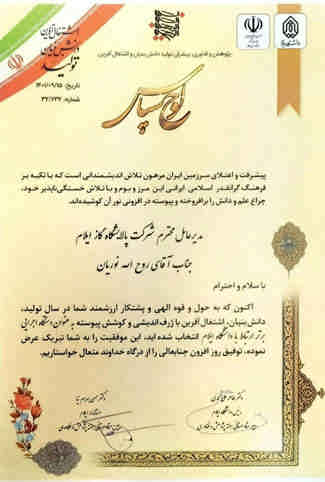 پژوهش و فناوری، پیشران تولید دانش بنیان و اشتغال آفرین
تولید
تاریخ: ۱۴۰۱/۰۹/۱۵
شماره: ۳۲/۷۳۲
لوح سپاس
پیشرفت و اعتلای سرزمین ایران مرهون تلاش اندیشمندانی است که با تکیه بر
فرهنگ گرانقدر اسلامی ایرانی این مرز و بوم و با تلاش خستگی‌ناپذیر خود،
چراغ علم و دانش را برافروخته و پیوسته در افزونی نور آن کوشیده‌اند.
مدیرعامل محترم شرکت پالایشگاه گاز ایلام
جناب آقای روح الله نوریان
با سلام و احترام
اکنون که به حول و قوه الهی و پشتکار ارزشمند شما در سال تولید،
دانش بنیان، اشتغال آفرین با ژرف اندیشی و کوشش پیوسته به عنوان دستگاه اجرایی
برتر در ارتباط با دانشگاه ایلام انتخاب شده اید، این موفقیت را به شما تبریک عرض
نموده، توفیق روز افزون جنابعالی را از درگاه خداوند متعال خواستاریم.